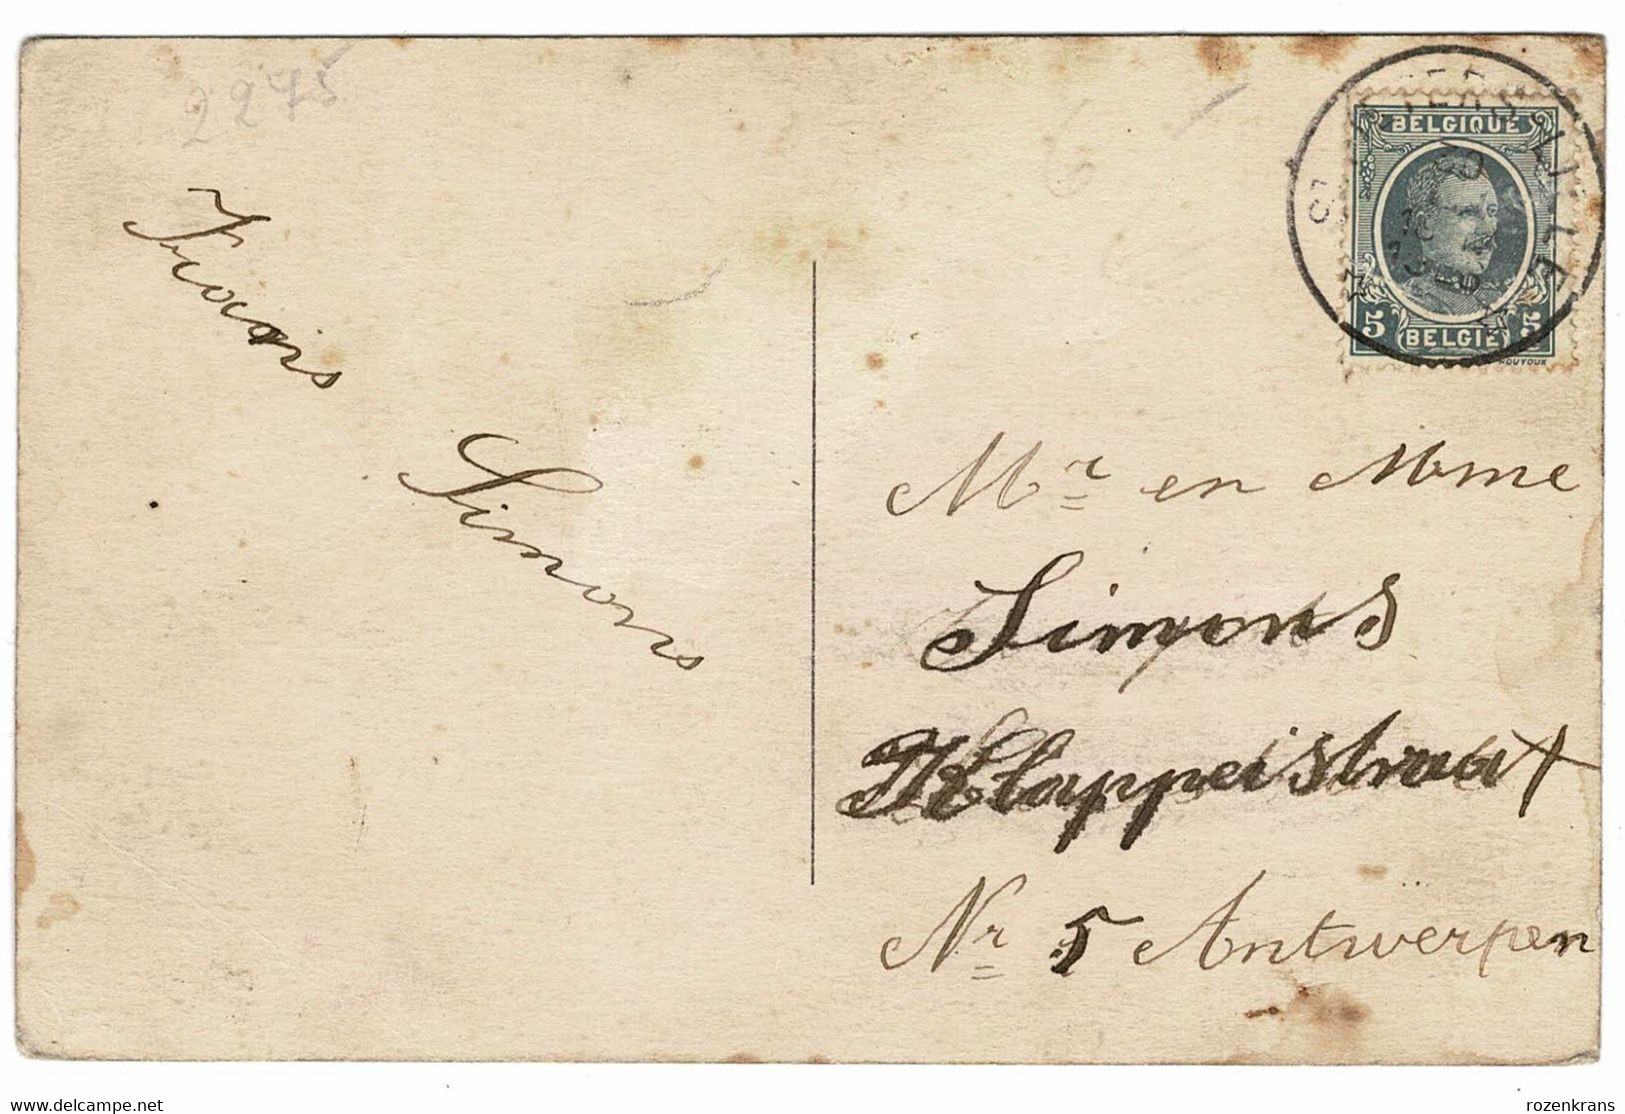 2275
Simons
BELGIQUE
5 BELGIË 5
HOUYOUX
Mr en Mme
Simons
Klappeistraat
Nr 5 Antwerpen
delcampe.net
rozenkrans